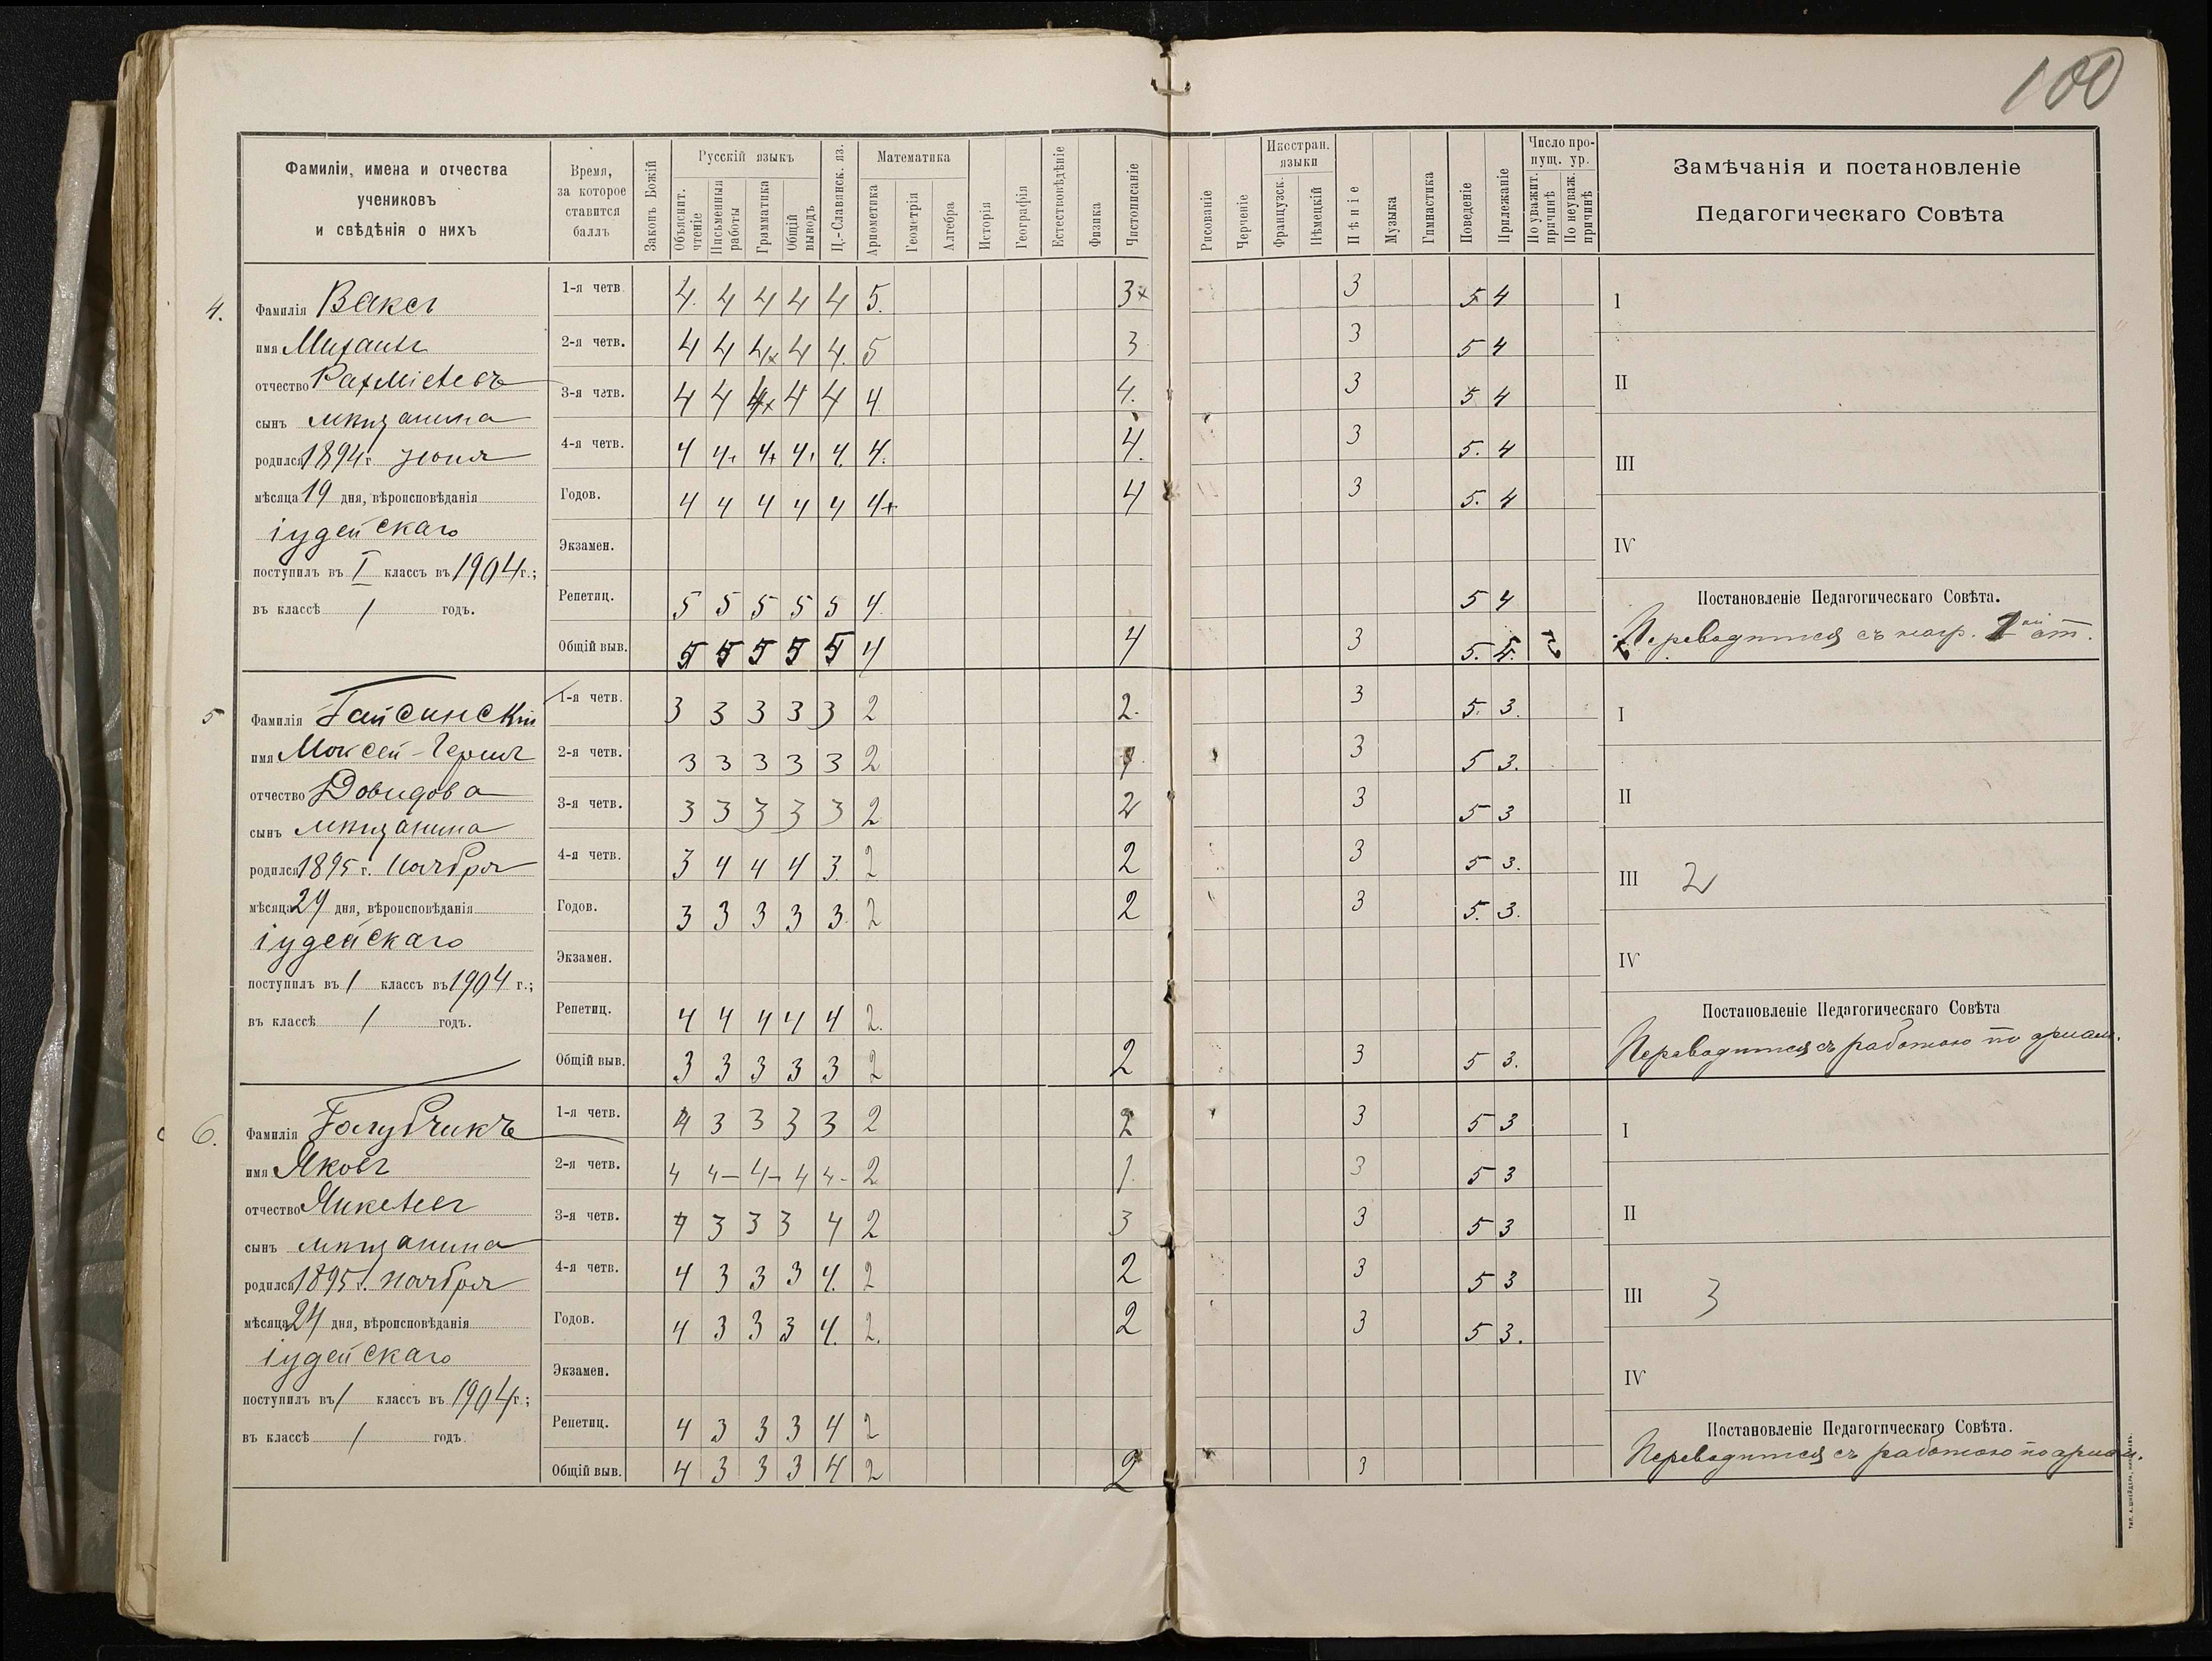 100
Фамиліи, имена и отчества
учениковъ
и свѣдѣнія о нихъ
Время,
за которое
ставится
баллъ
Законъ Божій
Русскій языкъ
Объяснит. чтеніе
Письменныя работы
Грамматика
Общій выводъ
Ц.-Славянск. яз.
Математика
Ариѳметика
Геометрія
Алгебра
Исторія
Географія
Естествовѣдѣніе
Физика
Чистописаніе
Рисованіе
Черченіе
Иностран. языки
Французск.
Нѣмецкій
Пѣніе
Музыка
Гимнастика
Поведеніе
Прилежаніе
Число пропущ. ур.
По уважит. причинѣ
По неуваж. причинѣ
Замѣчанія и постановленіе
Педагогическаго Совѣта
4.
Фамилія Ваксъ
имя Михаилъ
отчество
сынъ мѣщанина
родился 1894 г. іюня
мѣсяца 19 дня, вѣроисповѣданія
іудейскаго
поступилъ въ I классъ въ 1904 г.;
въ классѣ 1 годъ.
1-я четв. 4. 4 4 4 4 5. 3+ 3 5 4
2-я четв. 4 4 4+ 4 4. 5 3 3 5 4
3-я четв. 4 4 4+ 4 4 4 4. 3 5 4
4-я четв. 4 4+ 4+ 4+ 4. 4. 4. 3 5. 4
Годов. 4 4 4 4 4 4+ 4 3 5. 4
Экзамен.
Репетиц. 5 5 5 5 5 4 5 4
Общій выв. 5 5 5 5 5 4 4 3 5.
I
II
III
IV
Постановленіе Педагогическаго Совѣта.
Переводится съ нагр. ст.
5
Фамилія Гайсинскій
имя Моисей-Гершъ
отчество Довидова
сынъ мѣщанина
родился 1895 г. ноября
мѣсяца 29 дня, вѣроисповѣданія
іудейскаго
поступилъ въ 1 классъ въ 1904 г.;
въ классѣ 1 годъ.
1-я четв. 3 3 3 3 3 2 2. 3 5. 3.
2-я четв. 3 3 3 3 3 2 3 5 3.
3-я четв. 3 3 3 3 3 2 2 3 5 3
4-я четв. 3 4 4 4 3. 2 2 3 5 3.
Годов. 3 3 3 3 3. 2 2 3 5. 3.
Экзамен.
Репетиц. 4 4 4 4 4 2.
Общій выв. 3 3 3 3 3 2 2 3 5 3.
I
II
III 2
IV
Постановленіе Педагогическаго Совѣта
Переводится съ работою по ариѳм.
6.
Фамилія Голубчикъ
имя Яковъ
отчество
сынъ мѣщанина
родился 1895 г. ноября
мѣсяца 24 дня, вѣроисповѣданія
іудейскаго
поступилъ въ 1 классъ въ 1904 г.;
въ классѣ 1 годъ
1-я четв. 4 3 3 3 3 2 2 3 5 3
2-я четв. 4 4- 4- 4 4- 2 1 3 5 3
3-я четв. 4 3 3 3 4 2 3 3 5 3
4-я четв. 4 3 3 3 4. 2 2 3 5 3
Годов. 4 3 3 3 4. 2. 2 3 5 3.
Экзамен.
Репетиц. 4 3 3 3 4 2
Общій выв. 4 3 3 3 4 2 2 3
I
II
III 3
IV
Постановленіе Педагогическаго Совѣта.
Переводится съ работою по ариѳм.